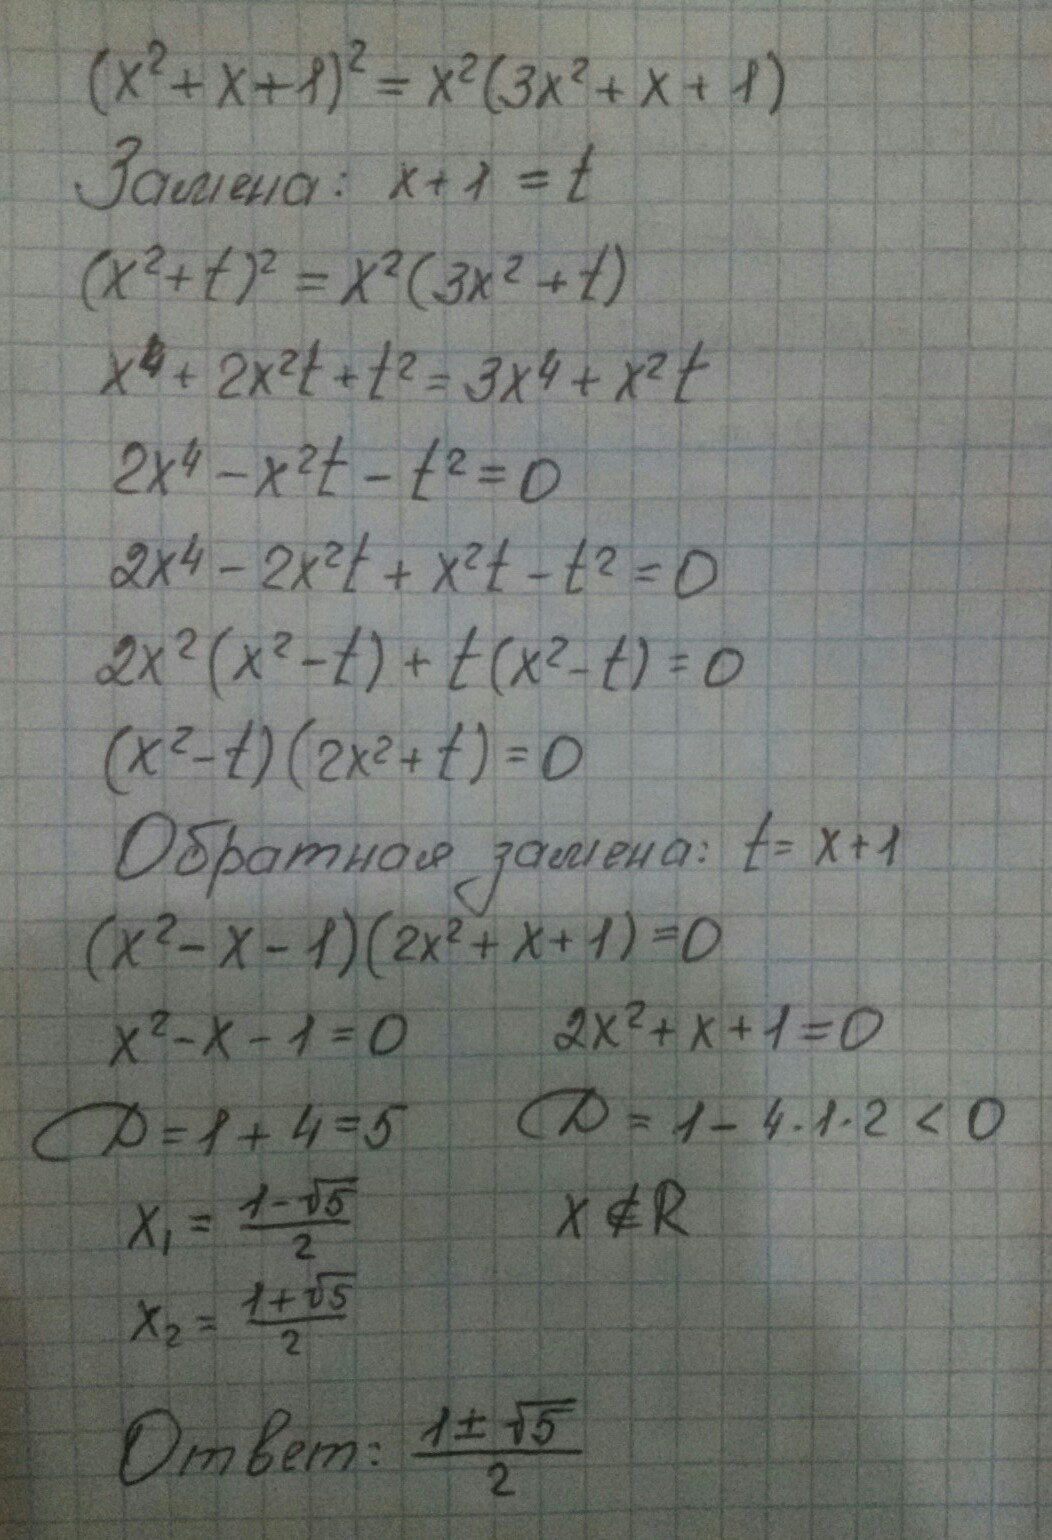 (x²+x+1)² = x²(3x²+x+1)
Замена: x+1 = t
(x²+t)² = x²(3x²+t)
x⁴+2x²t+t² = 3x⁴+x²t
2x⁴-x²t-t²=0
2x⁴-2x²t+x²t-t²=0
2x²(x²-t)+t(x²-t)=0
(x²-t)(2x²+t)=0
Обратная замена: t= x+1
(x²-x-1)(2x²+x+1)=0
x²-x-1=0 2x²+x+1=0
D=1+4=5 D=1-4·1·2<0
x₁ = (1-√5)/2 x∉R
x₂ = (1+√5)/2
Ответ: (1±√5)/2